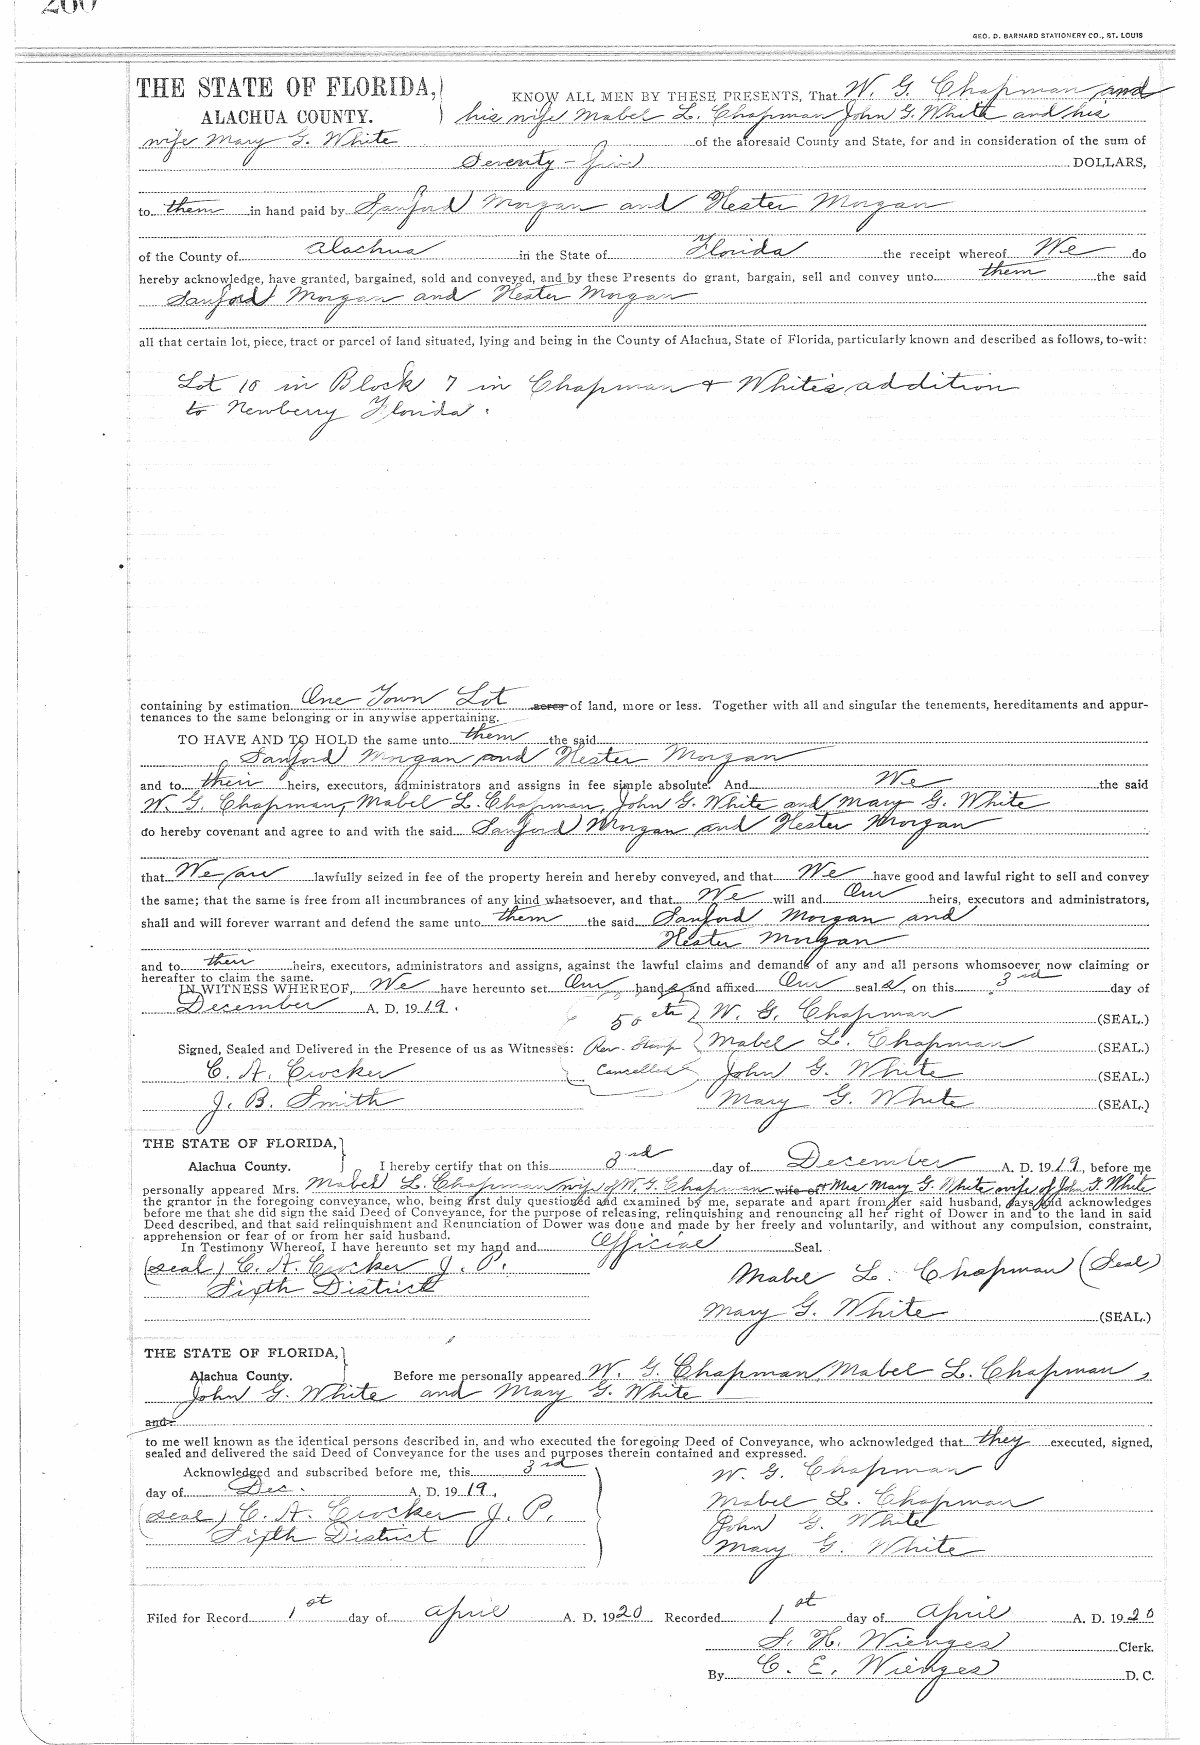 GEO. D. BARNARD STATIONERY CO., ST. LOUIS
THE STATE OF FLORIDA,
ALACHUA COUNTY.
KNOW ALL MEN BY THESE PRESENTS, That W. G. Chapman and
his wife Mabel L. Chapman John G. White and his
wife Mary G. White of the aforesaid County and State, for and in consideration of the sum of
Seventy-five DOLLARS,
to them in hand paid by Sanford Morgan and Hester Morgan
of the County of Alachua in the State of Florida the receipt whereof We do
hereby acknowledge, have granted, bargained, sold and conveyed, and by these Presents do grant, bargain, sell and convey unto them the said
Sanford Morgan and Hester Morgan
all that certain lot, piece, tract or parcel of land situated, lying and being in the County of Alachua, State of Florida, particularly known and described as follows, to-wit:
Lot 10 in Block 7 in Chapman & White's addition
to Newberry Florida.
containing by estimation One Town Lot acres of land, more or less. Together with all and singular the tenements, hereditaments and appur-
tenances to the same belonging or in anywise appertaining.
TO HAVE AND TO HOLD the same unto them the said
Sanford Morgan and Hester Morgan
and to their heirs, executors, administrators and assigns in fee simple absolute. And We the said
W. G. Chapman, Mabel L. Chapman, John G. White and Mary G. White
do hereby covenant and agree to and with the said Sanford Morgan and Hester Morgan
that We are lawfully seized in fee of the property herein and hereby conveyed, and that We have good and lawful right to sell and convey
the same; that the same is free from all incumbrances of any kind whatsoever, and that We will and Our heirs, executors and administrators,
shall and will forever warrant and defend the same unto them the said Sanford Morgan and
Hester Morgan
and to their heirs, executors, administrators and assigns, against the lawful claims and demands of any and all persons whomsoever now claiming or
hereafter to claim the same.
IN WITNESS WHEREOF, We have hereunto set Our hands and affixed Our seals, on this 3rd day of
December A. D. 1919.
50 cts W. G. Chapman (SEAL.)
Signed, Sealed and Delivered in the Presence of us as Witnesses: Rev. Stamp Mabel L. Chapman (SEAL.)
C. A. Crocker Cancelled John G. White (SEAL.)
J. B. Smith Mary G. White (SEAL.)
THE STATE OF FLORIDA,
Alachua County. I hereby certify that on this 3rd day of December A. D. 1919, before me
personally appeared Mrs. Mabel L. Chapman wife of W. G. Chapman wife of & Mrs Mary G. White wife of John G. White
the grantor in the foregoing conveyance, who, being first duly questioned and examined by me, separate and apart from her said husband, says and acknowledges
before me that she did sign the said Deed of Conveyance, for the purpose of releasing, relinquishing and renouncing all her right of Dower in and to the land in said
Deed described, and that said relinquishment and Renunciation of Dower was done and made by her freely and voluntarily, and without any compulsion, constraint,
apprehension or fear of or from her said husband.
In Testimony Whereof, I have hereunto set my hand and Official Seal.
(seal) C. A. Crocker J. P. Mabel L. Chapman (Seal)
Sixth District
Mary G. White (SEAL.)
THE STATE OF FLORIDA,
Alachua County. Before me personally appeared W. G. Chapman, Mabel L. Chapman,
John G. White and Mary G. White
and
to me well known as the identical persons described in, and who executed the foregoing Deed of Conveyance, who acknowledged that they executed, signed,
sealed and delivered the said Deed of Conveyance for the uses and purposes therein contained and expressed.
Acknowledged and subscribed before me, this 3rd W. G. Chapman
day of Dec. A. D. 1919, Mabel L. Chapman
(seal) C. A. Crocker J. P. John G. White
Sixth District Mary G. White
Filed for Record 1st day of April A. D. 1920 Recorded 1st day of April A. D. 1920
S. H. Wienges Clerk.
By C. E. Wienges D. C.